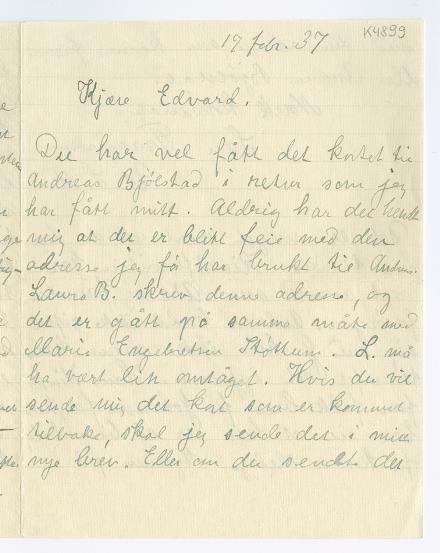 K4899
17 febr. 37
Kjære Edvard.
Du har vel fått det kortet til
Andreas Bjølstad i retur som jeg
har fått mitt. Aldrig har det hendt
mig at det er blitt feil med den
adresse jeg før har brukt til Andreas.
Laura B. skrev denne adresse, og
det er gått på samme måte med
Marie Engebretsen Støttum. L. må
ha vært litt omtåget. Hvis du vil
sende mig det kort som er kommet
tilbake, skal jeg sende det i mitt
nye brev. Eller om du sendte det